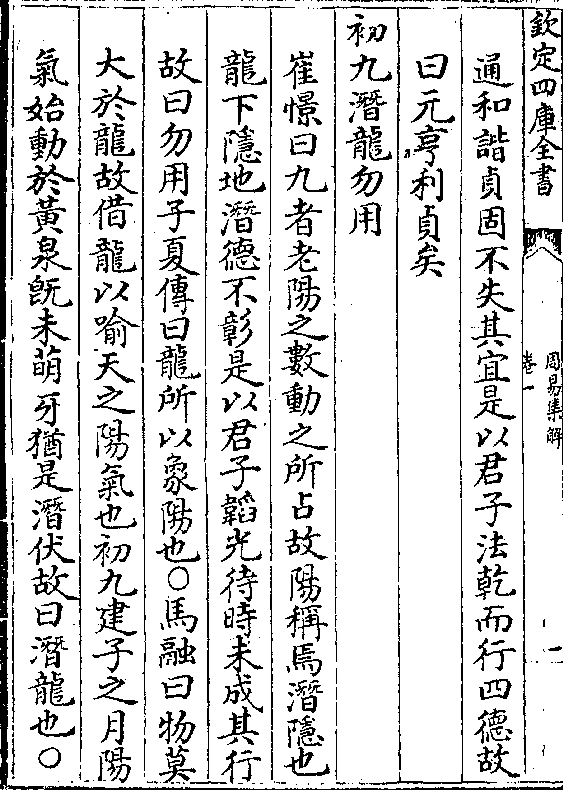 欽定四庫全書
周易集解
卷一
一
通和諧貞固不失其宜是以君子法乾而行四德故
曰元亨利貞矣
初九潛龍勿用
崔憬曰九者老陽之數動之所占故陽稱焉潛隱也
龍下隱地潛德不彰是以君子韜光待時未成其行
故曰勿用子夏傳曰龍所以象陽也○馬融曰物莫
大於龍故借龍以喻天之陽氣也初九建子之月陽
氣始動於黃泉旣未萌牙猶是潛伏故曰潛龍也○